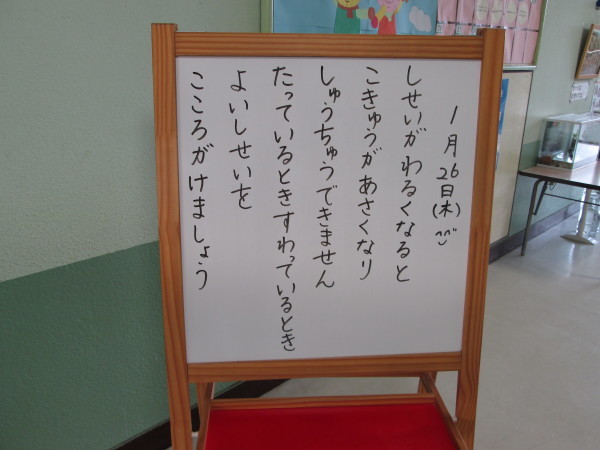 1月26日(木)
しせいがわるくなると
こきゅうがあさくなり
しゅうちゅうできません
たっているときすわっているとき
よいしせいを
こころがけましょう